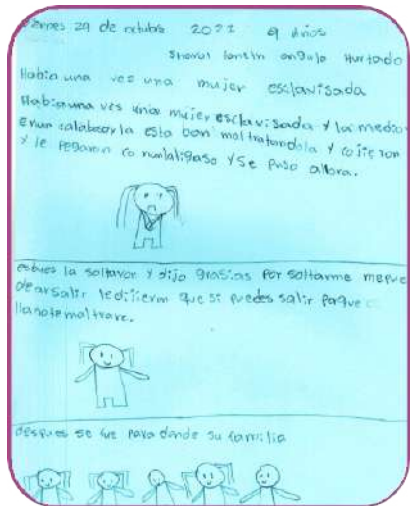 Viernes 29 de octubre 2021 9 años
Sharol angulo Hurtado
Habia una vez una mujer esclavisada
Habia una ves una mujer esclavisada y la medio
en un calaboso la esta ban mal tratandola y cojieron
y le pegaron co nunlatigaso y se puso allora.
la soltaron y dijo grasias por soltarme me pue
dedilieron que si puedes salir paque
llanotemaltrare.
despues se fue para donde su familia